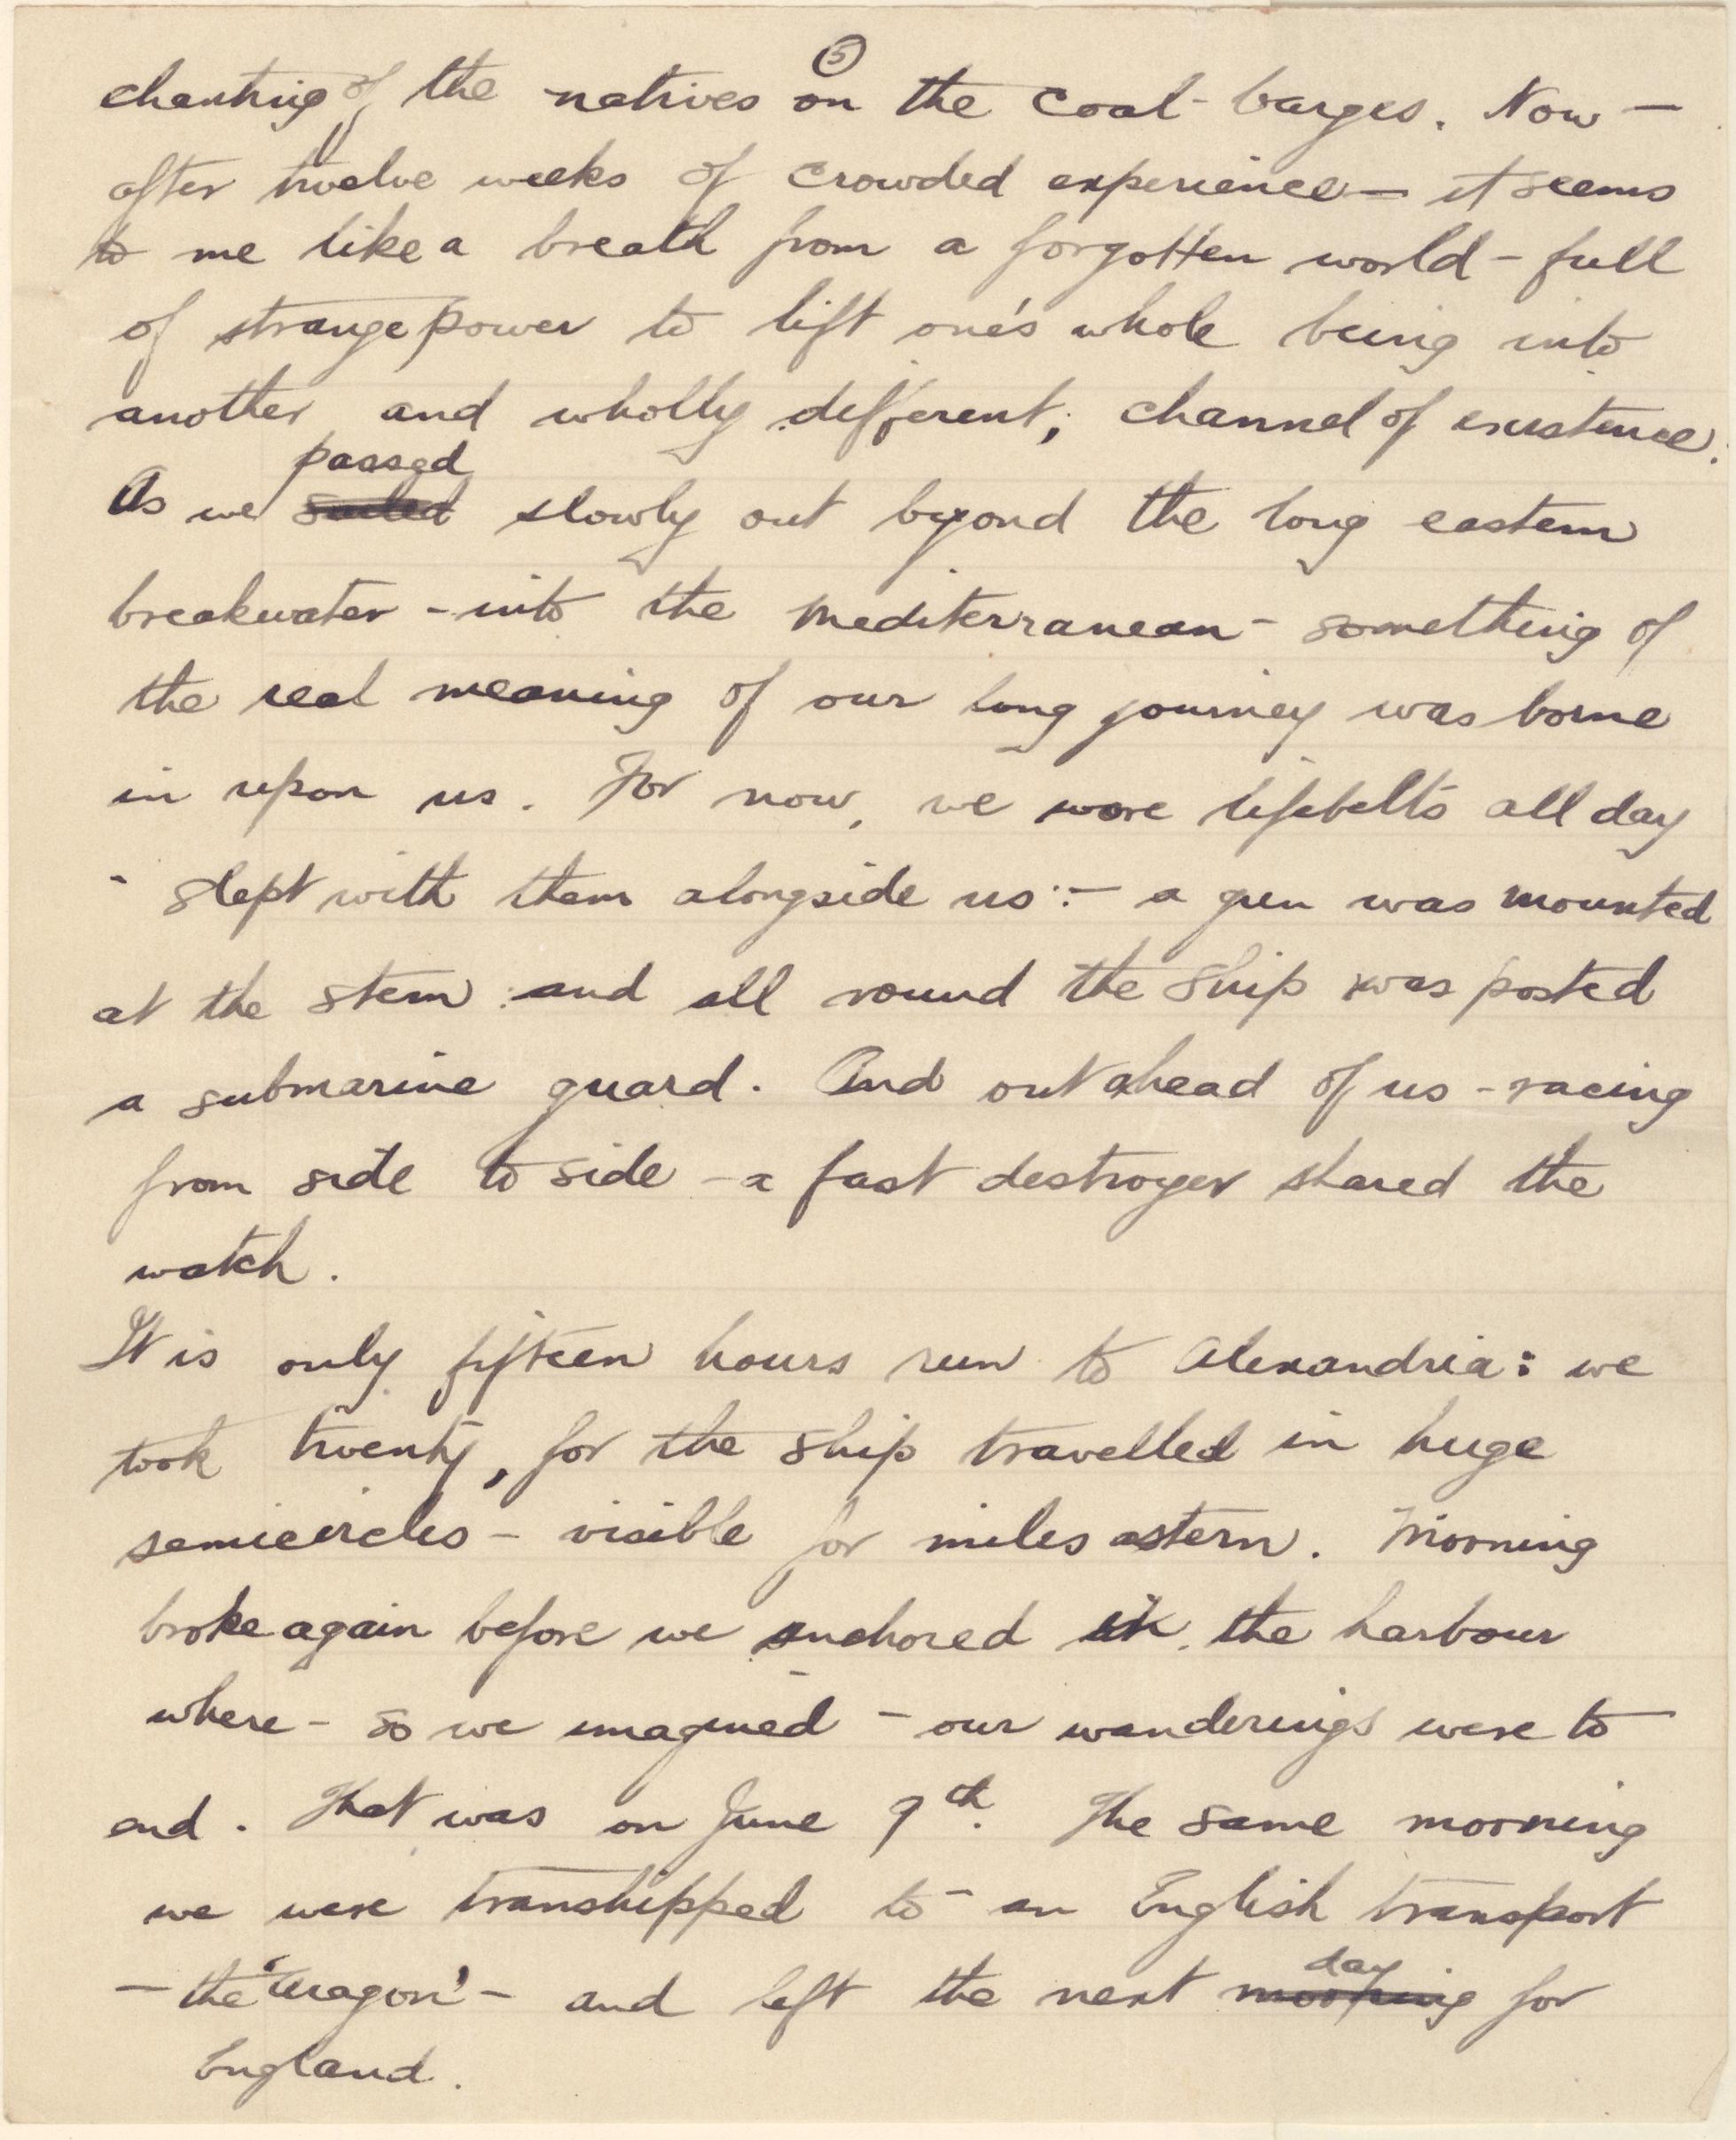 5
chanting of the natives on the coal-barges. Now —
after twelve weeks of crowded experience — it seems
to me like a breath from a forgotten world - full
of strange power to lift one's whole being into
another, and wholly different, channel of existence.
passed
As we sailed slowly out beyond the long eastern
breakwater - into the Mediterranean - something of
the real meaning of our long journey was borne
in upon us. For now, we wore lifebelts all day
- slept with them alongside us :- a gun was mounted
at the stern : and all round the ship was posted
a submarine guard. And out ahead of us - racing
from side to side - a fast destroyer shared the
watch.
It is only fifteen hours run to Alexandria : we
took twenty, for the ship travelled in huge
semicircles - visible for miles astern. Morning
broke again before we anchored in the harbour
where - so we imagined - our wanderings were to
end. That was on June 9th. The same morning
we were transhipped to an English transport
day
— the 'Aragon' - and left the next morning for
England.